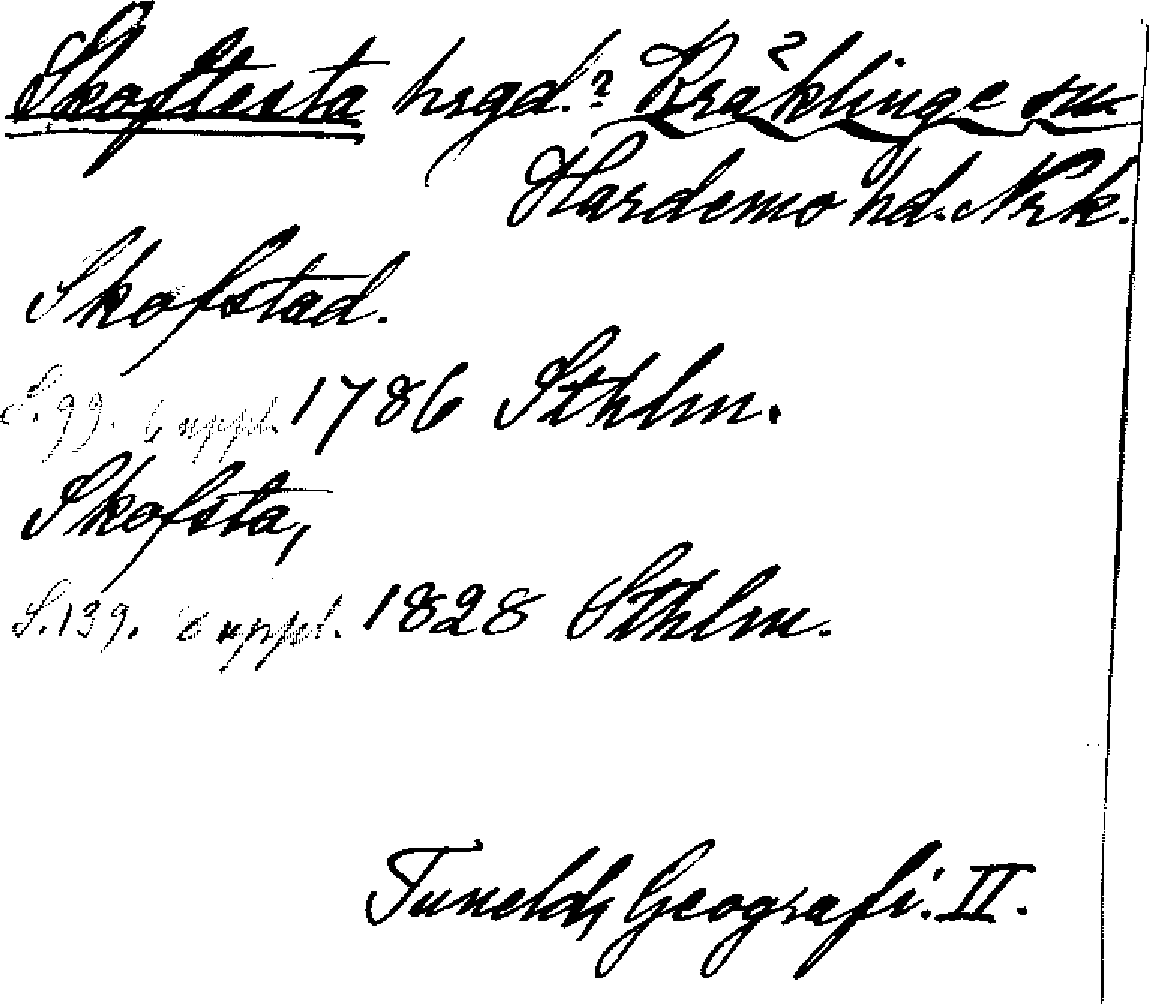 Skoftesta hrgd.? Kräklinge sn
Hardemo hd. Nrk.
Skofstad.
S. 99. 6 uppl. 1786 Sthlm.
Skofsta,
S. 139. 8 uppl. 1828 Sthlm.
Tunelds Geografi. II.